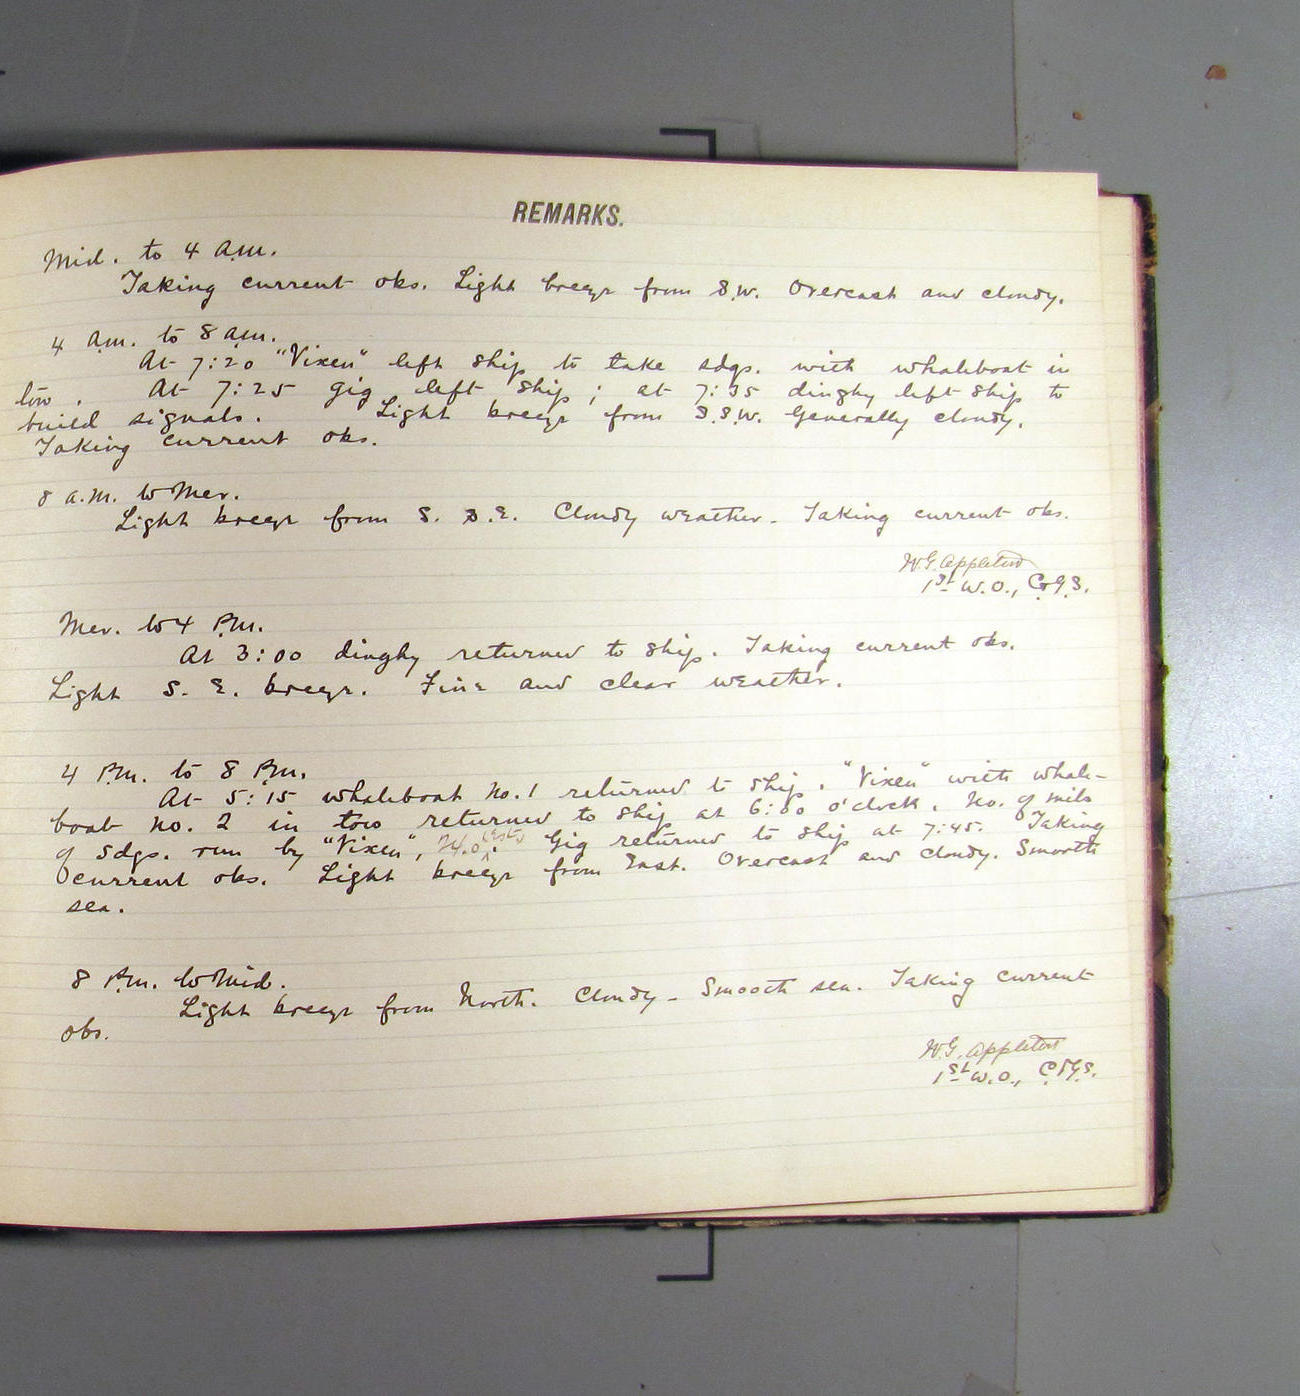 REMARKS.
Mid. to 4 a.m.
Taking current obs. Light breeze from S.W. Overcast and cloudy.
4 a.m. to 8 a.m.
At 7:20 "Vixen" left ship to take sdgs. with whaleboat in
tow. At 7:25 gig left ship; at 7:35 dinghy left ship to
build signals. Light breeze from S.S.W. Generally cloudy.
Taking current obs.
8 a.m. to Mer.
Light breeze from S. S.E. Cloudy weather. Taking current obs.
W.G. Appleton
1st W.O., C&G.S.
Mer. to 4 P.m.
At 3:00 dinghy returned to ship. Taking current obs.
Light S. E. breeze. Fine and clear weather.
4 P.m. to 8 P.m.
At 5:15 whaleboat No. 1 returned to ship. "Vixen" with whale-
boat No. 2 in tow returned to ship at 6:00 o'clock. No. of mils
of sdgs. run by "Vixen", Gig returned to ship at 7:45. Taking
current obs. Light breeze from East. Overcast and cloudy. Smooth
sea.
8 P.m. to Mid.
Light breeze from North. Cloudy - Smooth sea. Taking current
obs.
W.G. Appleton
1st W.O., C&G.S.